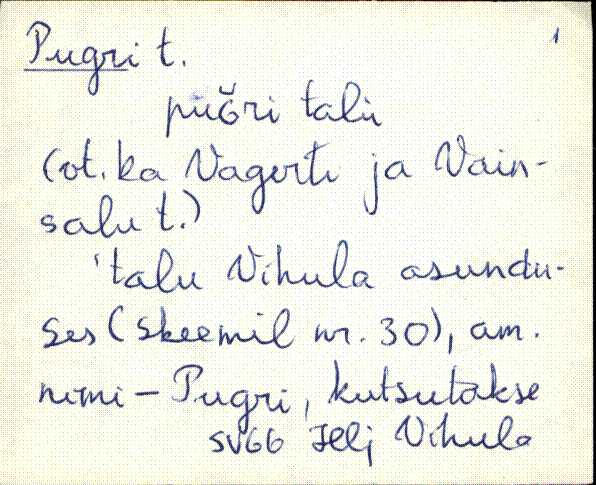 Pugri t. 1
pŭŏri talu
(vt. ka Vagerti ja Vain-
salu t.)
'talu Vihula asundu-
ses (skeemil nr. 30), am.
nimi - Pugri, kutsutakse
Hlj Vihula